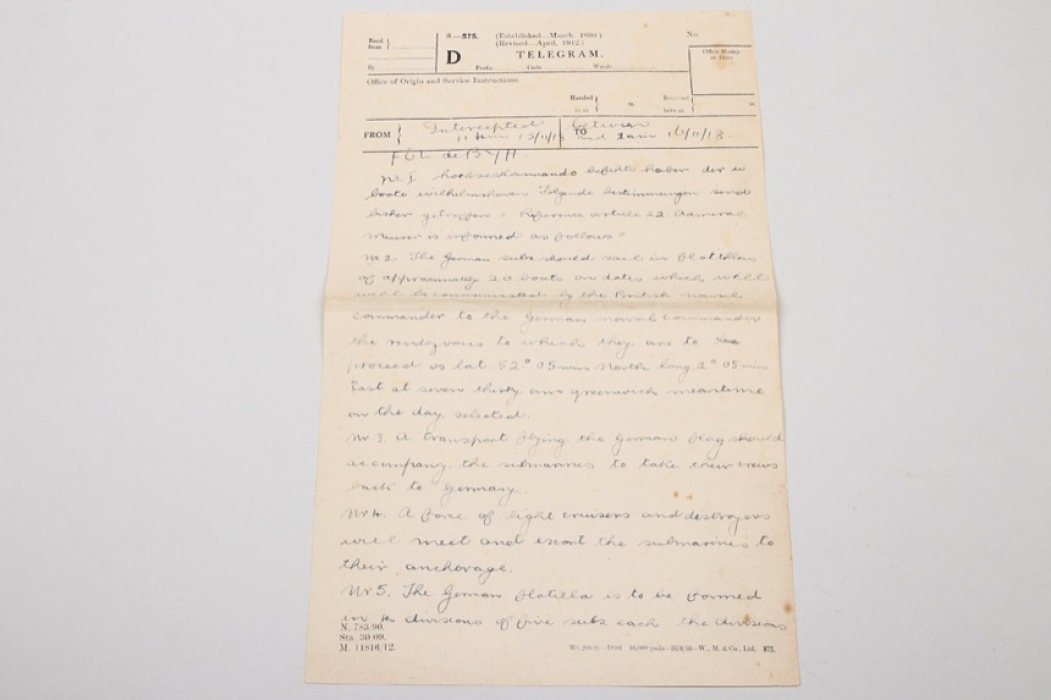 S.—575. (Established—March, 1900.)
(Revised—April, 1912.)
Recd. from
D
TELEGRAM.
No.
By
Prefix Code Words
Office Stamp
Office of Origin and Service Instructions.
Handed
Received
in at m
here at m
FROM Intercepted between TO
and 1 am 16/11/18
de BYH
Nr I hochseekommando befehlshaber der u
boote wilhelmshaven Folgende bestimmungen sind
bisher getroffen = Reference article 22. Admiral
Meurer is informed as follows =
Nr 2. The German subs should sail in flotillas
of approximately 20 boats on dates which will
will be communicated by the British naval
commander to the German naval commander
the rendezvous to which they are to
proceed is lat. 52° 05 min North Long. 2° 05 min
East at seven thirty am greenwich meantime
on the day selected.
Nr 3. A transport flying the German flag should
accompany the submarines to take their crews
back to Germany.
Nr 4. A force of light cruisers and destroyers
will meet and escort the submarines to
their anchorage.
Nr 5. The German flotilla is to be formed
in 4 divisions of five subs each. the divisions
N. 783/00.
Sta. 30/09.
M. 11816/12.
W., M. & Co., Ltd. 875.